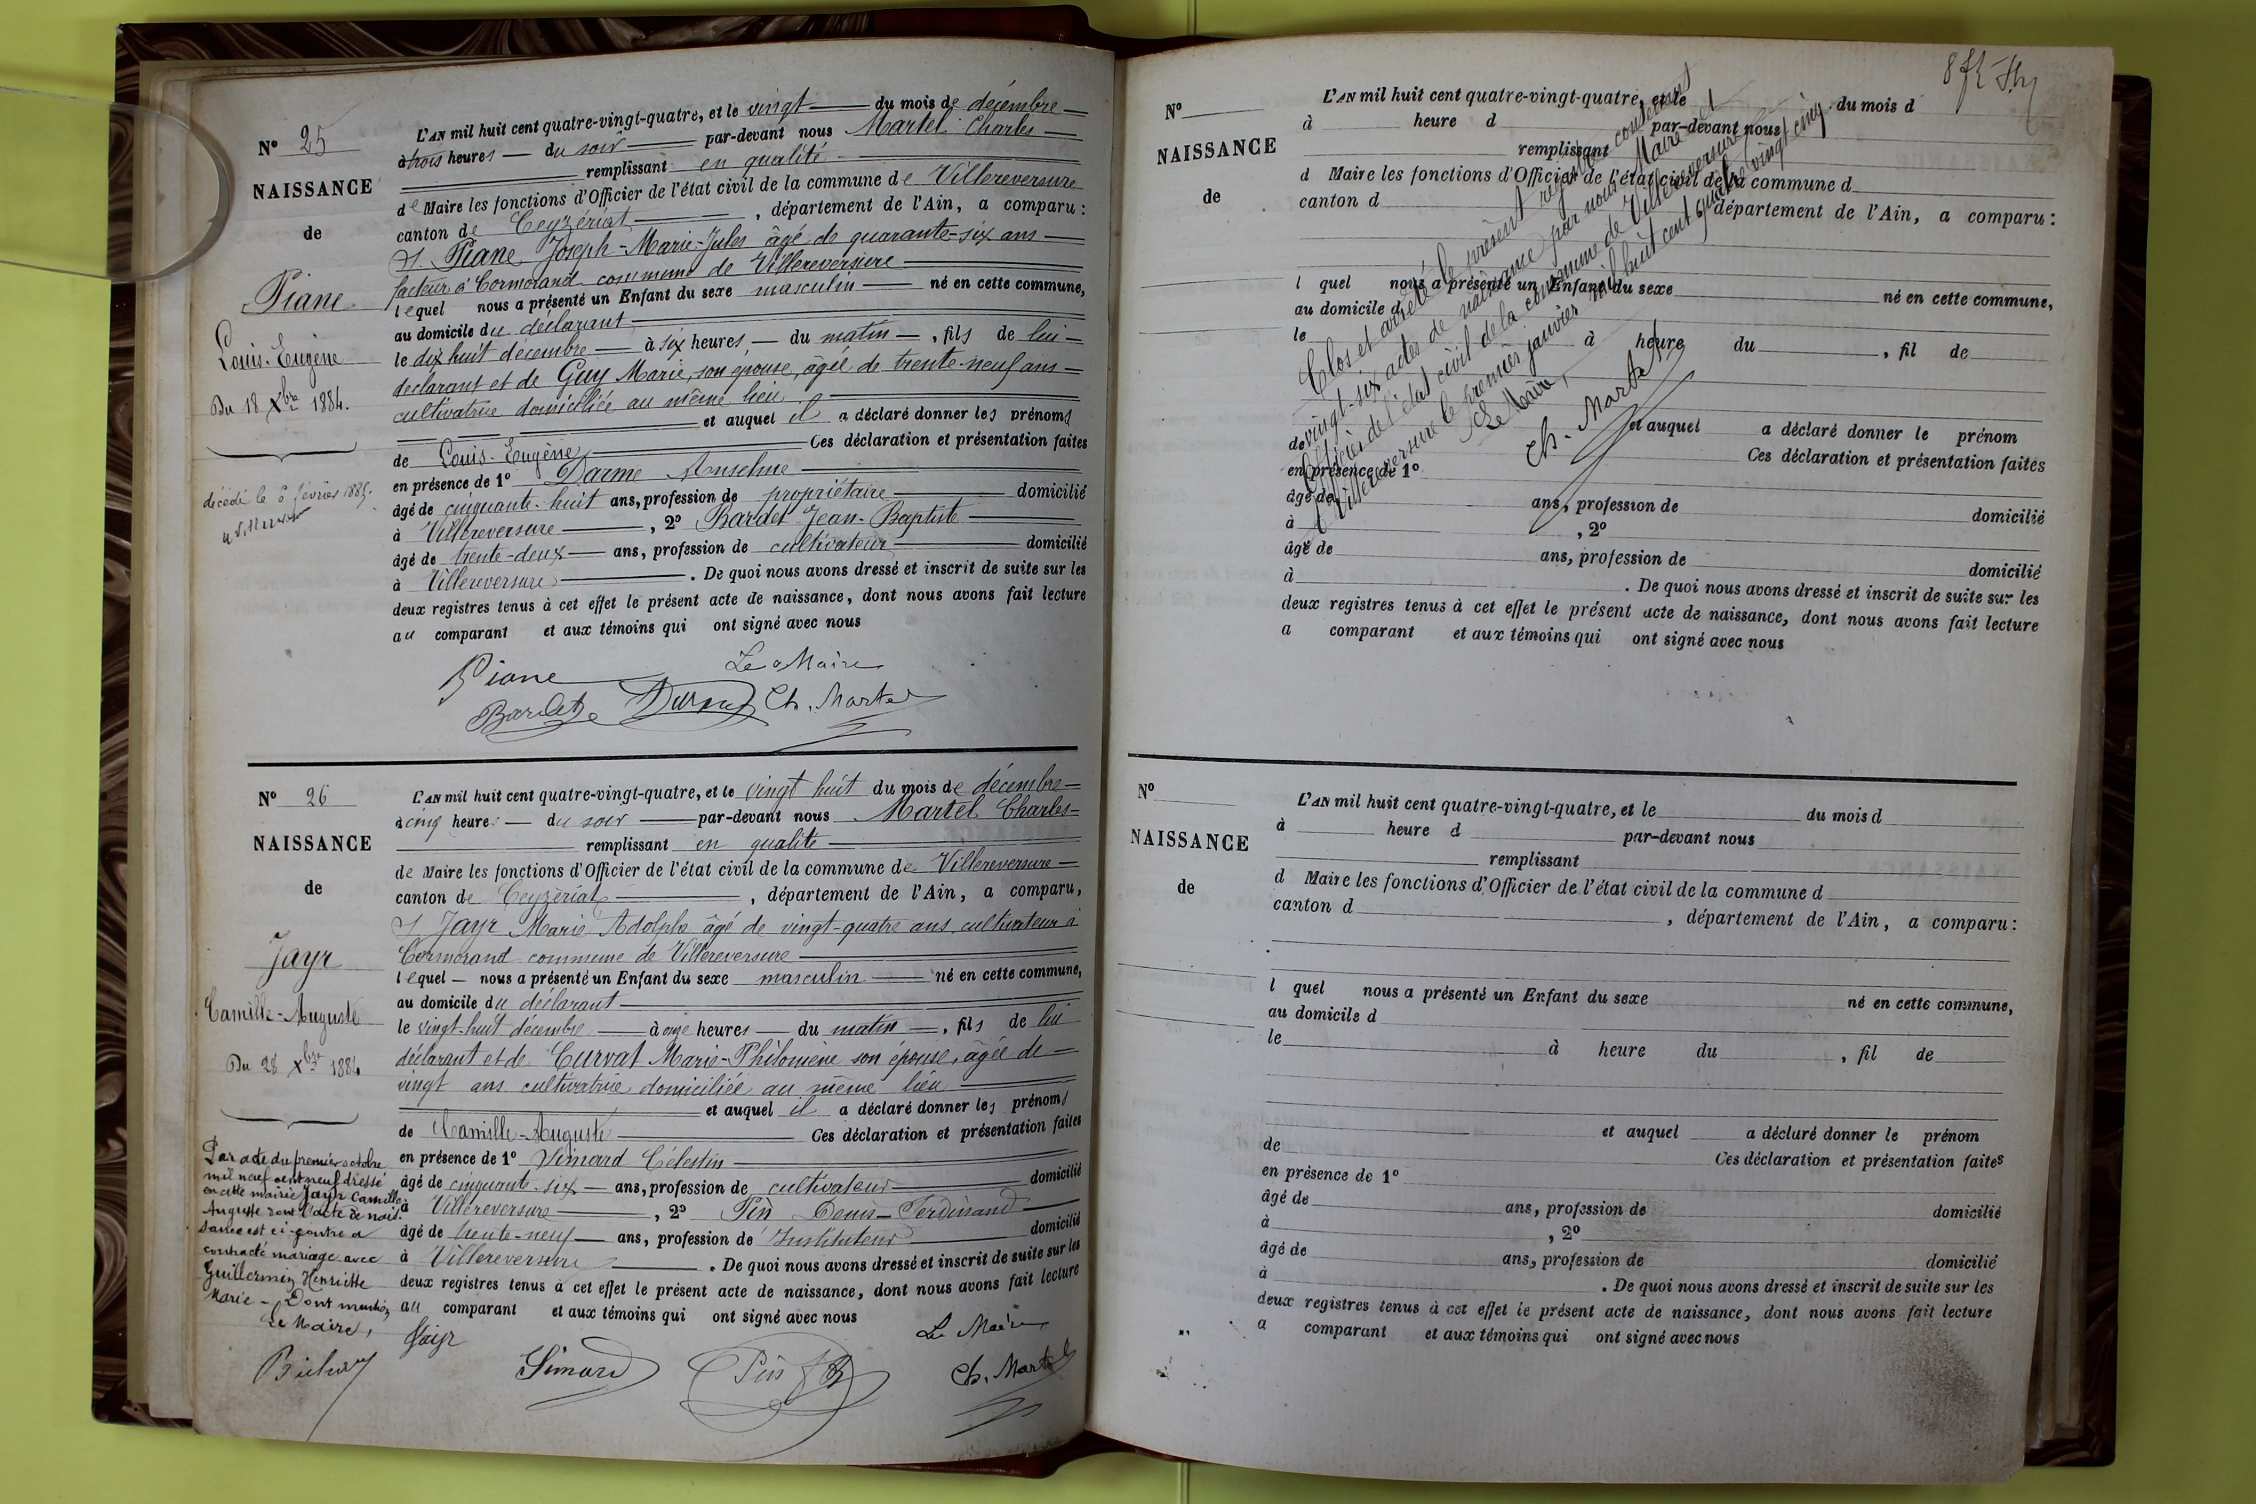 N° 25
NAISSANCE
de
Piane
Louis-Eugène
Du 18 Xbre 1884.
décédé le 6 février 1885.
L'AN mil huit cent quatre-vingt-quatre, et le vingt du mois de décembre
à trois heures du soir par-devant nous Martel Charles
remplissant en qualité
de Maire les fonctions d'Officier de l'état civil de la commune de Villereversure
canton de Ceyzériat, département de l'Ain, a comparu :
S. Piane Joseph-Marie-Jules âgé de quarante-six ans
facteur à Cormorand commune de Villereversure
lequel nous a présenté un Enfant du sexe masculin né en cette commune,
au domicile du déclarant
le dix huit décembre à six heures du matin, fils de lui
déclarant et de Guy Marie, son épouse, âgée de trente-neuf ans
cultivatrice domiciliée au même lieu
et auquel il a déclaré donner les prénoms
de Louis-Eugène Ces déclaration et présentation faites
en présence de 1° Darme Anselme
âgé de cinquante-huit ans, profession de propriétaire domicilié
à Villereversure, 2° Bardet Jean-Baptiste
âgé de trente-deux ans, profession de cultivateur domicilié
à Villereversure. De quoi nous avons dressé et inscrit de suite sur les
deux registres tenus à cet effet le présent acte de naissance, dont nous avons fait lecture
au comparant et aux témoins qui ont signé avec nous
Piane Le Maire
Bardet Ch. Martel
N° 26
NAISSANCE
de
Jayr
Camille-Auguste
Du 28 Xbre 1884
Par acte du premier octobre
mil neuf cent neuf dressé
en cette mairie Jayr Camille
Auguste dont l'acte de nais-
sance est ci-contre a
contracté mariage avec
Guillermin Henriette
Marie - Dont mention
Le Maire,
L'AN mil huit cent quatre-vingt-quatre, et le vingt huit du mois de décembre
à cinq heures du soir par-devant nous Martel Charles
remplissant en qualité
de Maire les fonctions d'Officier de l'état civil de la commune de Villereversure
canton de Ceyzériat, département de l'Ain, a comparu,
S. Jayr Marie Adolphe âgé de vingt-quatre ans cultivateur à
Cormorand commune de Villereversure
lequel nous a présenté un Enfant du sexe masculin né en cette commune,
au domicile du déclarant
le vingt-huit décembre à onze heures du matin, fils de lui
déclarant et de Curvat Marie-Philomène son épouse, âgée de
vingt ans cultivatrice domiciliée au même lieu
et auquel il a déclaré donner les prénoms
de Camille-Auguste Ces déclaration et présentation faites
en présence de 1° Simard Célestin
âgé de cinquante-six ans, profession de cultivateur domicilié
à Villereversure, 2° Pin Denis-Ferdinand
âgé de trente-neuf ans, profession de Instituteur domicilié
à Villereversure. De quoi nous avons dressé et inscrit de suite sur les
deux registres tenus à cet effet le présent acte de naissance, dont nous avons fait lecture
au comparant et aux témoins qui ont signé avec nous
Jayr Simard Pin Le Maire
Ch. Martel
N°
NAISSANCE
de
L'AN mil huit cent quatre-vingt-quatre, et le du mois d
à heure d par-devant nous
remplissant
d Maire les fonctions d'Officier de l'état civil de la commune d
canton d département de l'Ain, a comparu :
l quel nous a présenté un Enfant du sexe né en cette commune,
au domicile d
le à heure du , fil de
et auquel a déclaré donner le prénom
de Ces déclaration et présentation faites
en présence de 1°
âgé de ans, profession de domicilié
à , 2°
âgé de ans, profession de domicilié
à . De quoi nous avons dressé et inscrit de suite sur les
deux registres tenus à cet effet le présent acte de naissance, dont nous avons fait lecture
a comparant et aux témoins qui ont signé avec nous
Clos et arrêté le présent registre contenant
vingt-six actes de naissance par nous Maire et
Officier de l'état civil de la commune de Villereversure
à Villereversure le premier janvier mil huit cent quatre vingt cinq.
Le Maire,
Ch. Martel
N°
NAISSANCE
de
L'AN mil huit cent quatre-vingt-quatre, et le du mois d
à heure d par-devant nous
remplissant
d Maire les fonctions d'Officier de l'état civil de la commune d
canton d , département de l'Ain, a comparu :
l quel nous a présenté un Enfant du sexe né en cette commune,
au domicile d
le à heure du , fil de
et auquel a déclaré donner le prénom
de Ces déclaration et présentation faites
en présence de 1°
âgé de ans, profession de domicilié
à , 2°
âgé de ans, profession de domicilié
à . De quoi nous avons dressé et inscrit de suite sur les
deux registres tenus à cet effet le présent acte de naissance, dont nous avons fait lecture
a comparant et aux témoins qui ont signé avec nous